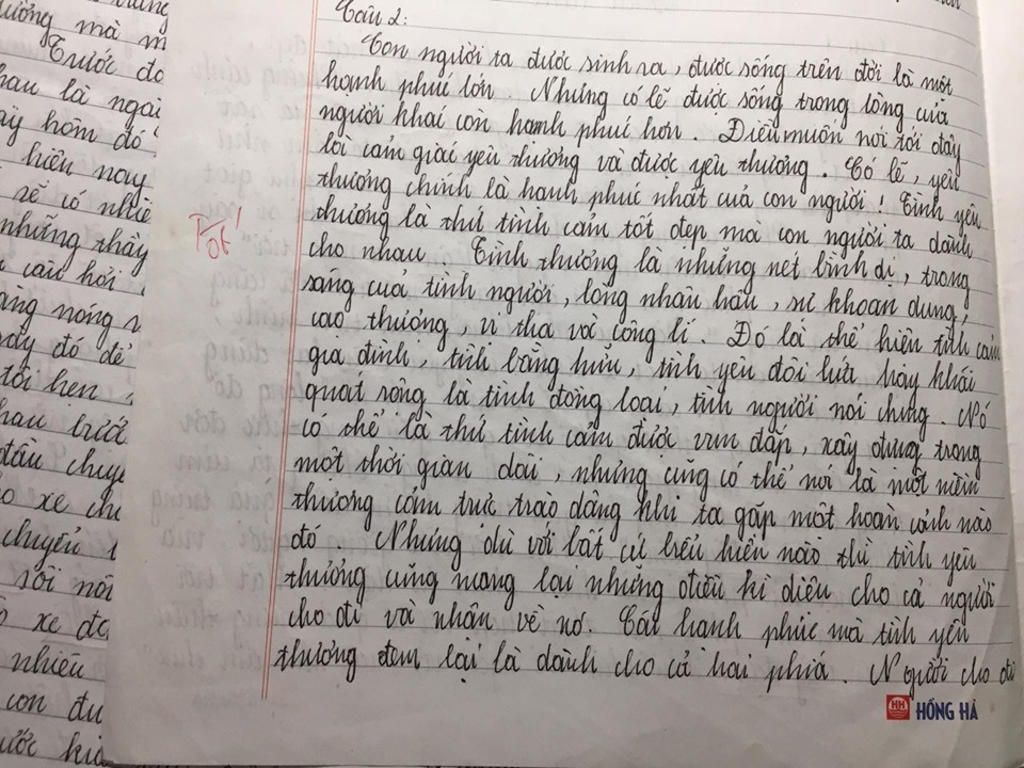 ưởng mà m
Trước đo
hau là ngài
ấy hôm đó
hiện nay
sẽ có nhiề
những thầy
câu hỏi
nóng
đó để
tôi hẹn
hau trước
đầu chuyệ
xe
chuyển
rồi
xe
nhiều
con đư
ước
Câu 2:
Con người ta được sinh ra, được sống trên đời là một
hạnh phúc lớn Nhưng có lẽ được sống trong lòng của
người khác còn hạnh phúc hơn. Điều muốn nói tới đây
là cảm giác yêu thương và được yêu thương. Có lẽ, yêu
thương chính là hạnh phúc nhất của con người! Tình yêu
thương là thứ tình cảm tốt đẹp mà con người ta dành
cho nhau. Tình thương là những nét bình dị, trong
sáng của tình người, lòng nhân hậu, sự khoan dung,
cao thượng, vị tha và công lí. Đó là thể hiện tình cảm
gia đình, tình bằng hữu, tình yêu đôi lứa hay khái
quát rộng là tình đồng loại, tình người nói chung. Nó
có thể là thứ tình cảm được vun đắp, xây dựng trong
một thời gian dài, nhưng cũng có thể nói là một niềm
thương cảm trực trào dâng khi ta gặp một hoàn cảnh nào
đó. Nhưng dù với bất cứ biểu hiện nào thì tình yêu
thương cũng mang lại những điều kì diệu cho cả người
cho đi và nhận về nó. Cái hạnh phúc mà tình yêu
thương đem lại là dành cho cả hai phía. Người cho đi
Tốt!
HỒNG HÀ